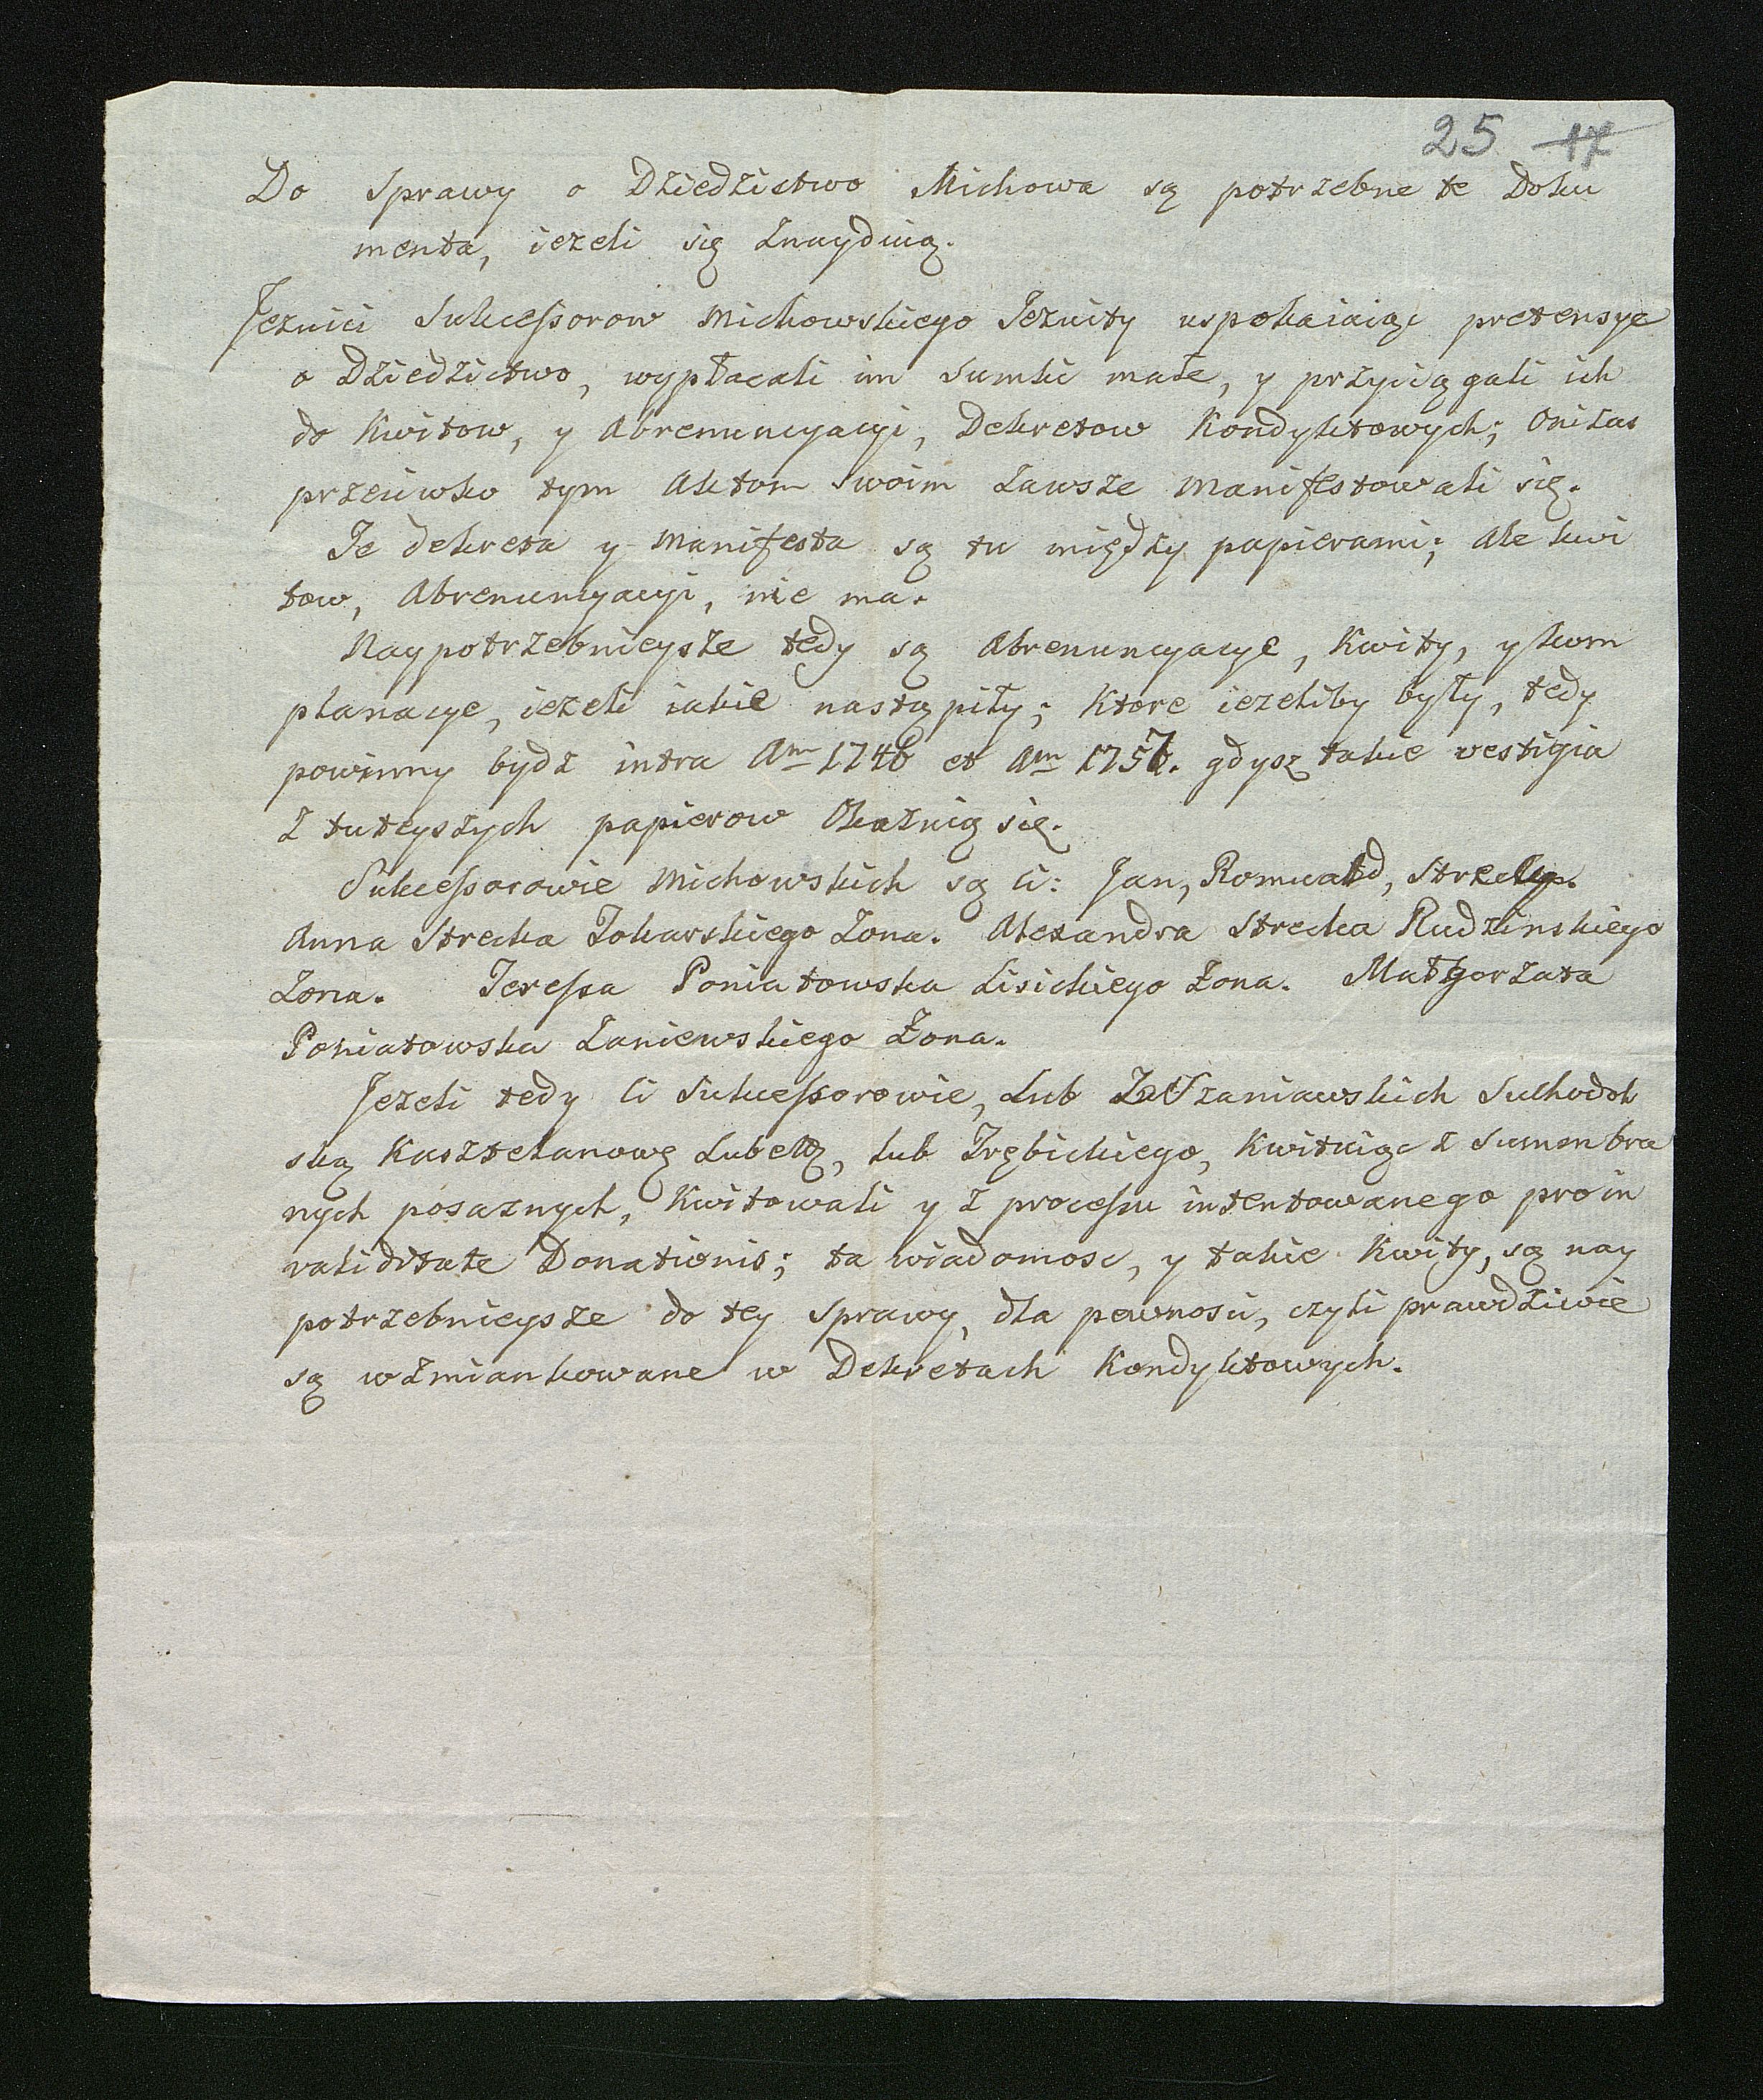 25 17
Do Sprawy o Dziedzictwo Michowa są potrzebne te Doku
menta, iezeli się znayduią.
Jezuici Sukceſsorow Michowskiego Jezuity uspokaiaiąc pretensye
o Dziedzictwo, wypłacali im Sumki małe, y przyciągali ich
do Kwitow, y Abrenuncyacyi, Dekretow Kondyktowych; Oni zas
przeciwko tym Aktom Swoim zawsze Manifestowali się.
Te dekreta y Manifesta są tu między papierami; Ale kwi
tow, Abrenuncyacyi, nie ma.
Naypotrzebnieysze tedy są Abrenuncyacye, Kwity, y kom
planacye, iezeli iakie nastąpiły; Ktore iezeliby były, tedy
powinny bydz intra Am 1746 et Am 1757. gdysz takie vestigia
z tuteyszych papierow Okazuią się.
Sukceſsorowie Michowskich są ci: Jan, Romuald,
Anna Strecka Tokarskiego Zona. Alexandra Strecka Rudzinskiego
Zona. Tereſsa Poniatowska Lisickiego Zona. Małgorzata
Poniatowska Zaniewskiego Zona.
Jezeli tedy ci Sukceſsorowie, Lub Szaniawskich Suchodol
ską Kasztelanowę Lubelą, lub Trębickiego, Kwituiąc z Summ bra
nych posaznych, Kwitowali y z proceſsu intentowanego pro in
validitate Donationis; ta wiadomosc, y takie Kwity, są nay
potrzebnieysze do tey Sprawy, dla pewnosci, czyli prawdziwie
są wzmiankowane w Dekretach Kondyktowych.